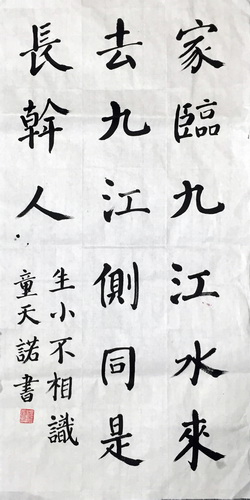 家臨九江水來
去九江側同是
長幹人
生小不相識
童天諾書